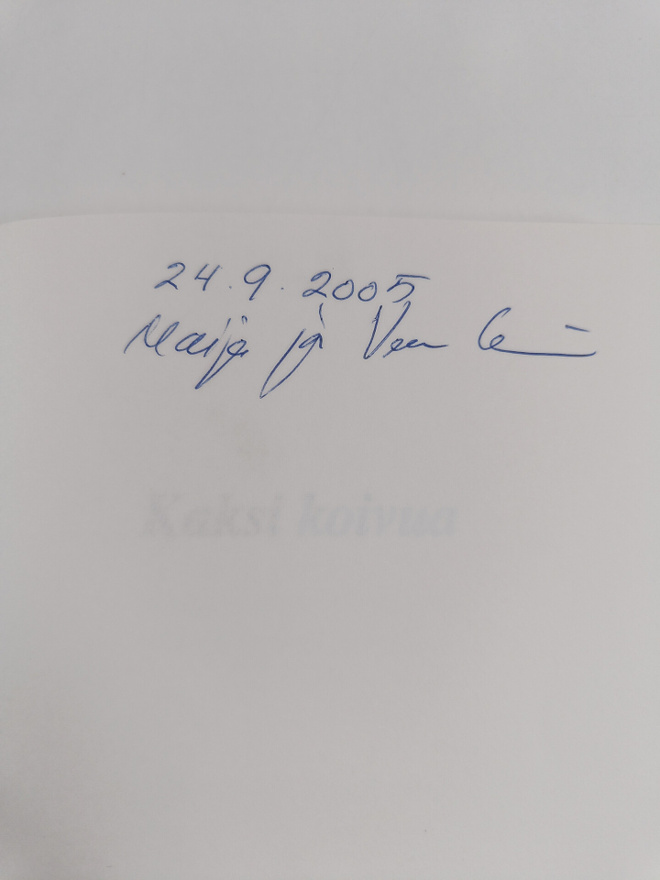 24.9.2005
Maija ja
Kaksi koivua